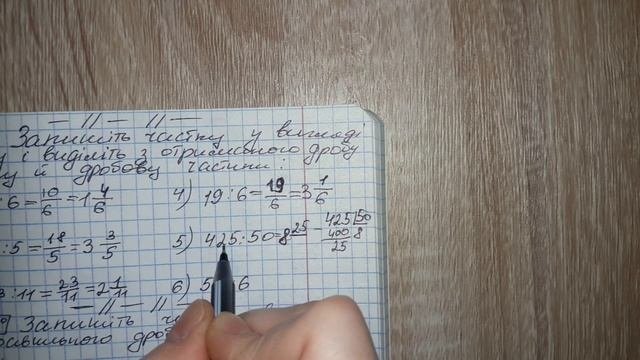 — // — // —
Запишіть частку у вигляді
у і виділіть з отриманого дробу
у й дробову частини:
:6=10/6=1 4/6 4) 19:6=19/6=3 1/6
:5=18/5=3 3/5 5) 425:50=8 25 − 425|50 400 8 25
3:11=23/11=2 1/11 6) 5 6
— // — // —
Запишіть